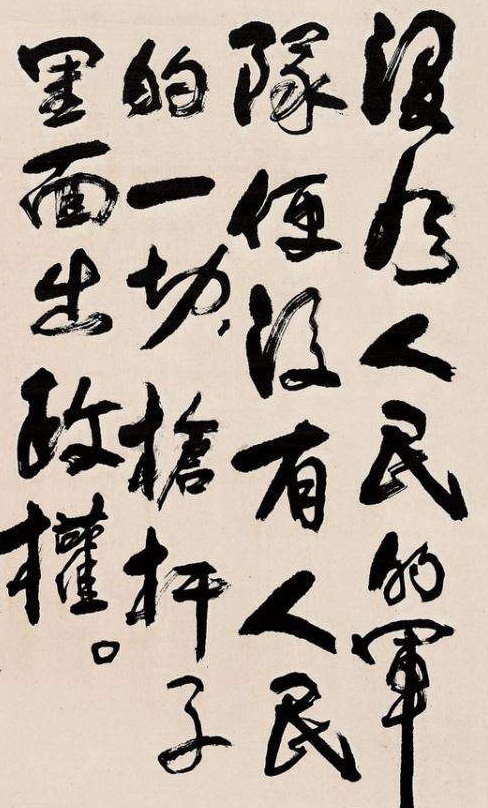 没有人民的軍
隊便没有人民
的一切，槍杆子
里面出政權。